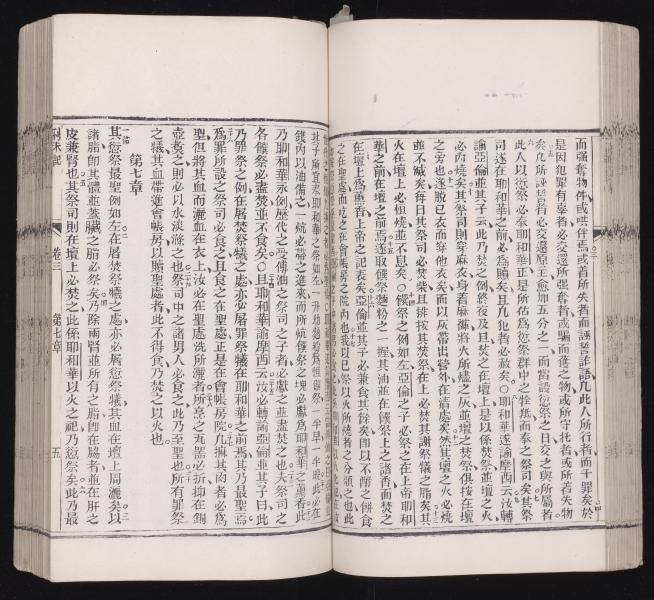 而强奪物件或哄伴焉或着所失者而誣誓誰語凡此人所行者而干罪矣於
是因犯罪有辜者必交還所强奪者或騙而得之物或所守托者或所著失物
矣凡所誣誓者必交還原主愈加五分之一而當該愆祭之日交之與所屬者
此人以愆祭必奉耶和華正是所估爲愆祭群中之牲無而奉之祭司矣其祭
司遂在耶和華之前必爲贖矣且凡犯者必赦矣○耶和華遂諭摩西云汝轉
諭亞倫並其子云此乃焚之例終夜及旦焚之在壇上是以係焚祭並壇之火
必內燒矣其祭司則穿麻衣身着麻褲將火所燼之灰並壇之焚祭俱按在壇
之旁也遂脫已衣而穿他衣矣而以灰帶出營外在清處矣然其壇之火必燒
並不滅矣每日其祭司必焚柴且排按其焚祭在上必焚其謝祭犧之脂矣其
火在壇上必恒燒並不息矣○饌祭之例如左亞倫之子必祭之在上帝耶和
華之前在壇之前焉遂取饌祭麵粉之一握其油並在饌祭上之諸香而焚之
在壇上爲薰香上帝之記表矣亞倫並其子必兼食其餘矣即以不酵之餅食
之在聖處而吃之在會帳房之院內也我以已祭以火所燒者之分頒之也此
其子所宜奉耶和華之祭如左
錢內以油備之一炕必帶之進來而所炕饌祭之塊必獻爲耶和華之薰香此
乃耶和華永例歷代之受傳油之祭司之子者必獻之並盡焚之也夫祭司之
各饌祭必盡焚並不食矣○且耶和華諭摩西云汝必轉諭亞倫並其子曰此
乃罪祭之例在屠焚祭犧之處亦必屠罪祭犧在耶和華之前焉其乃最聖焉
爲罪所設之祭司必食之且食之在聖處正是在會帳房院凡摸其肉者必爲
聖但將其血而灑在衣上汝必在聖處洗所灑者所烹之瓦器必折抑在銅
壺烹之則必以水淡滌之也祭司中之諸男人必食之此乃至聖也所有罪祭
之犧其血帶進會帳房以贖聖處者此不得食乃焚之以火也
第七章
其愆祭最聖例如左在屠焚祭犧之處亦必屠愆祭犧其血在壇上周灑矣以
諸脂即其臕並蓋臟之脂必祭矣乃除兩腎並所有之脂即在脇者並在肝之
皮兼腎也其祭司則在壇上必焚之此係耶和華以火之祀乃愆祭矣此乃最
利未記 卷三 第七章 五